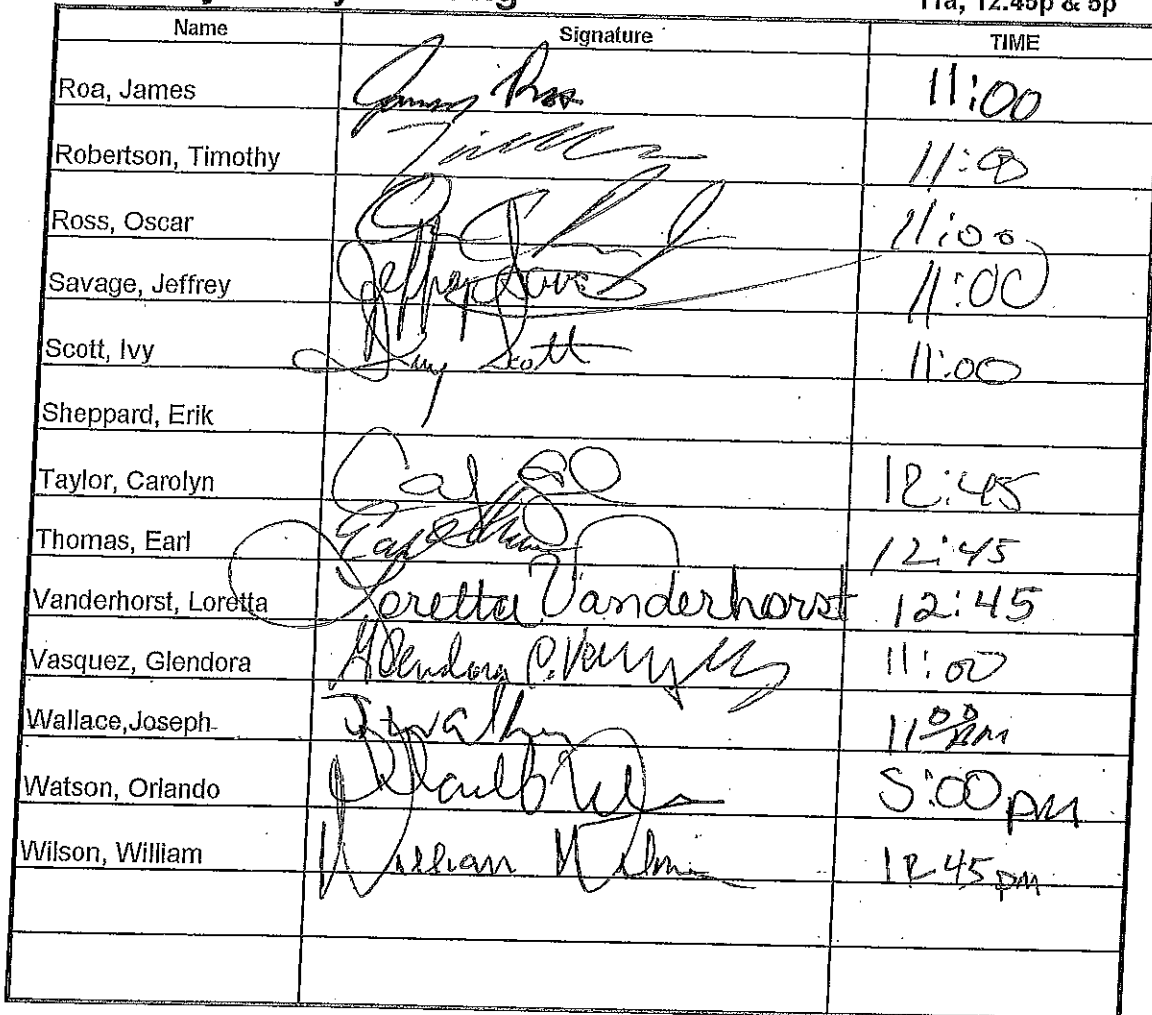 11a, 12:45p & 5p
Name Signature TIME
Roa, James 11:00
Robertson, Timothy 11:00
Ross, Oscar 11:00
Savage, Jeffrey Jeffrey 11:00
Scott, Ivy Ivy Scott 11:00
Sheppard, Erik
Taylor, Carolyn 12:45
Thomas, Earl Earl 12:45
Vanderhorst, Loretta Loretta Vanderhorst 12:45
Vasquez, Glendora Glendora 11:00
Wallace,Joseph 11:00
Watson, Orlando 5:00 PM
Wilson, William William Wilson 12:45 pm